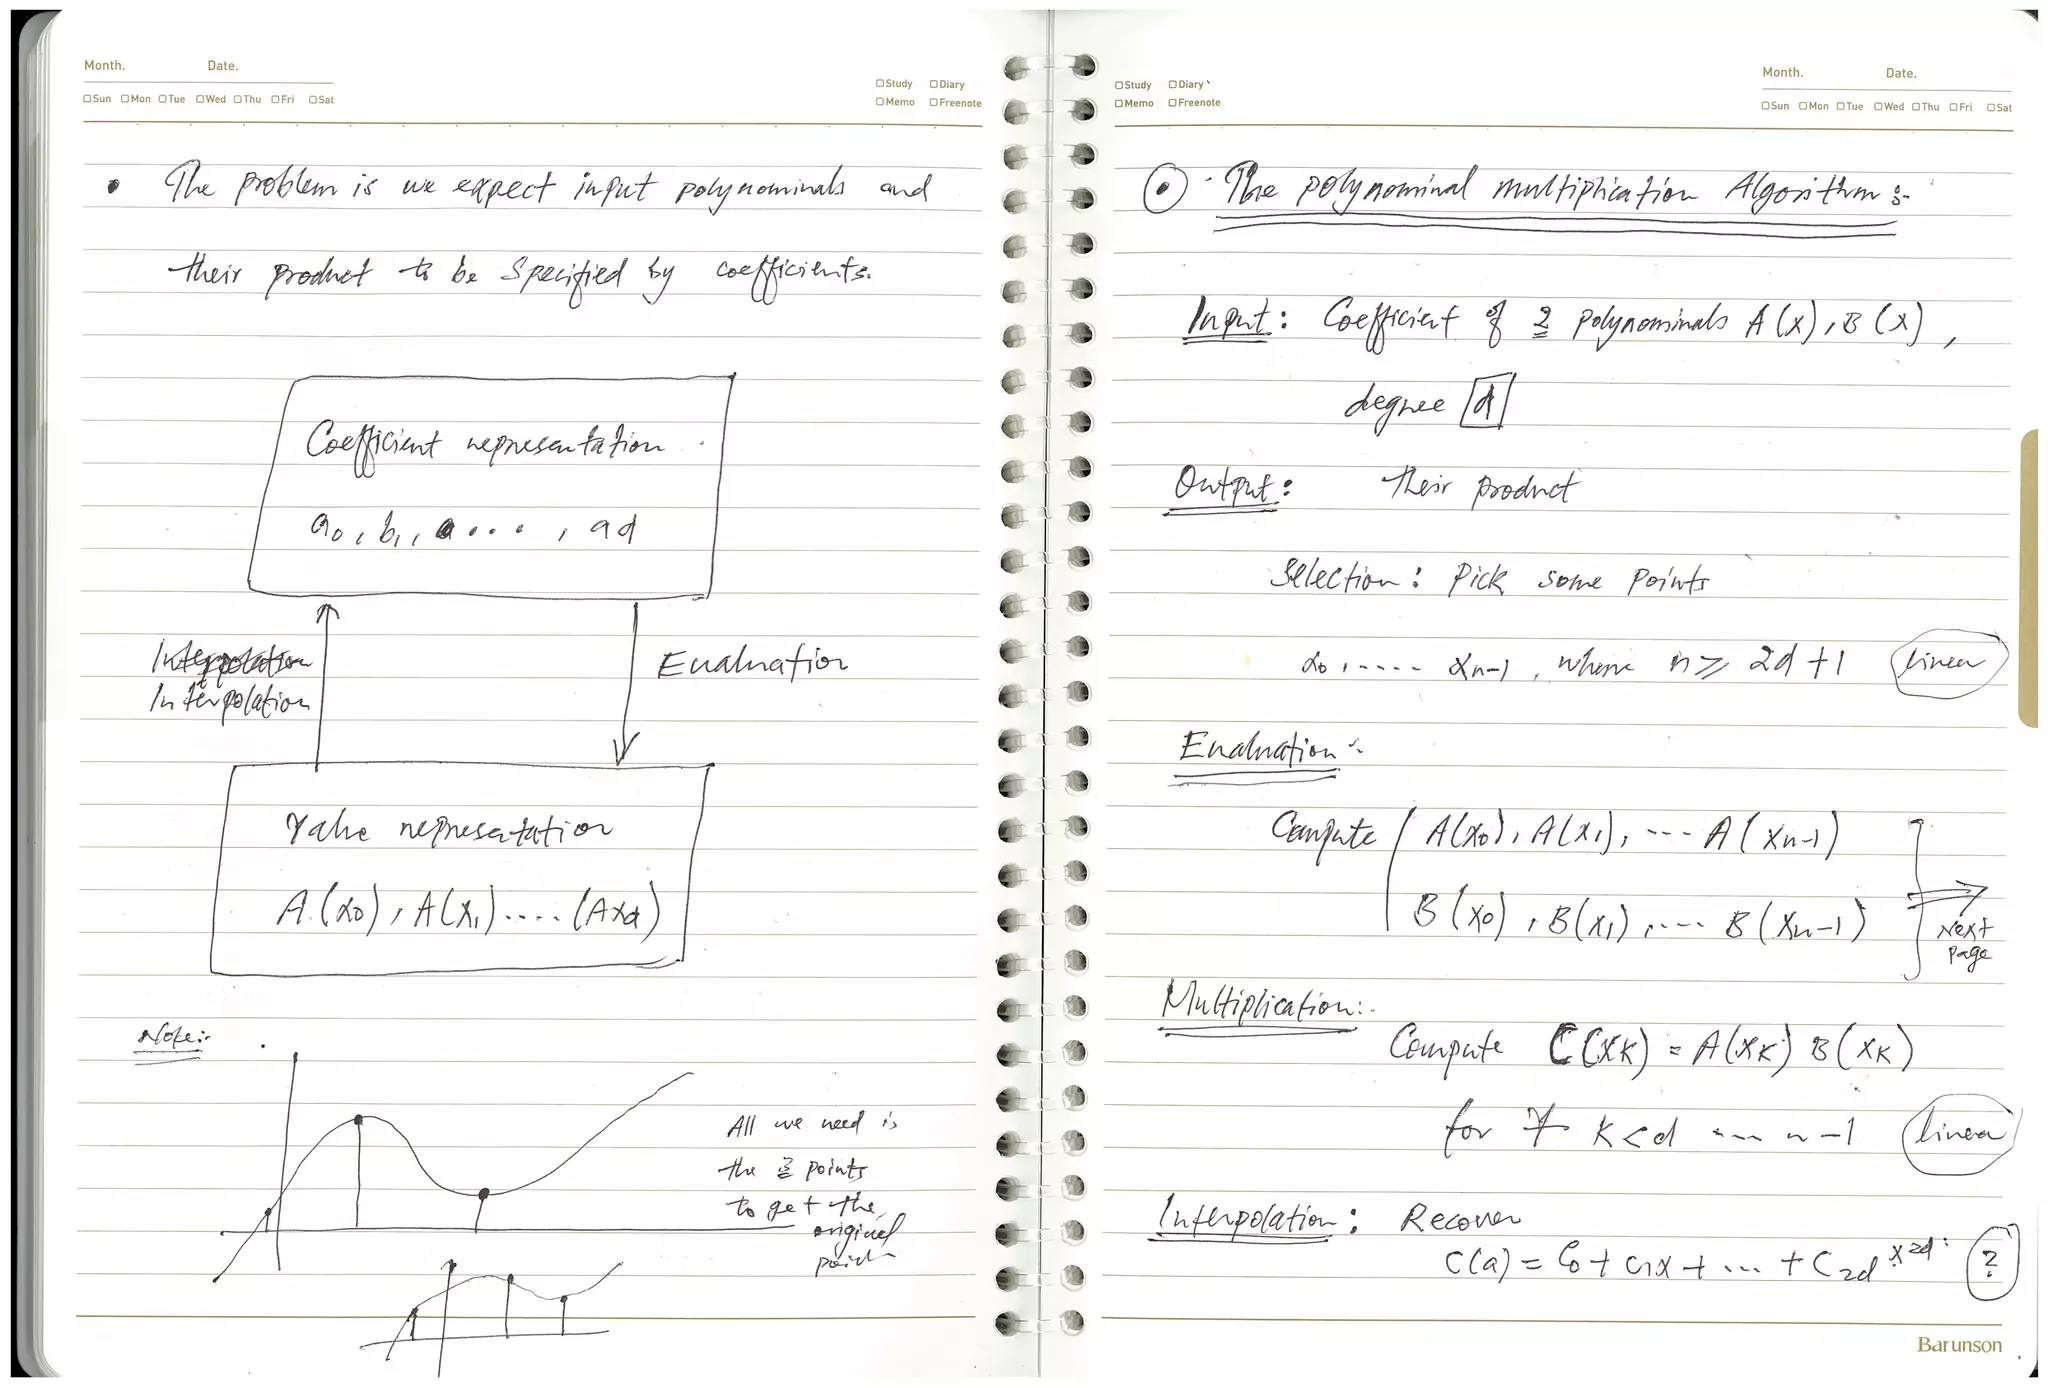 Month. Date.
Study Diary
Sun Mon Tue Wed Thu Fri Sat
Memo Freenote
• The problem is we expect input polynominals and
their product to be specified by coefficients.
Coefficient representation
a0, b1, a ..., ad
Interpolation
Interpolation
Evaluation
Value representation
A(x0), A(x1) .... (Axd)
Note:-
All we need is
the points
to get the
original
Study Diary
Memo Freenote
Month. Date.
Sun Mon Tue Wed Thu Fri Sat
The polynominal multiplication Algorithm:-
Input: Coefficient of 2 polynominals A(x), B(x),
degree d
Output: their product
Selection: Pick some points
x0, ..... xn-1, where n ≥ 2d+1 linear
Evaluation:-
Compute A(x0), A(x1), ... A(xn-1)
B(x0), B(x1), .... B(xn-1)
Next
page
Multiplication:-
Compute C(xK) = A(xK) B(xK)
for K<d ... n-1 linear
Interpolation: Recover
C(a) = C0 + C1x + ... + C2d x2d ?
Barunson